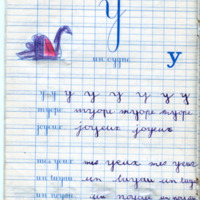 y
un cygne
y
y y y y y y y y
myope myope myope myope
joyeux joyeux joyeux
mes yeux mes yeux mes yeux
un tuyau un tuyau un tuyau
un noyau un noyau un noyau